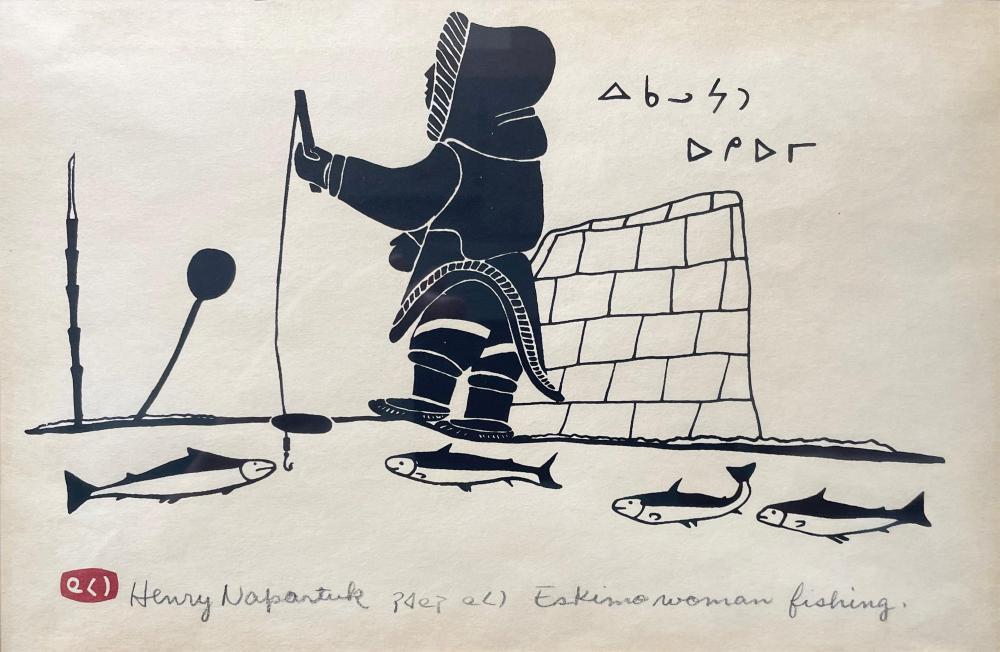 ᐃᑲᓗᔭᑐ
ᐅᑭᐅᒥ
ᓇᐸᑐ
Henry Napartuk ᓇᐸᑐ Eskimo woman fishing.